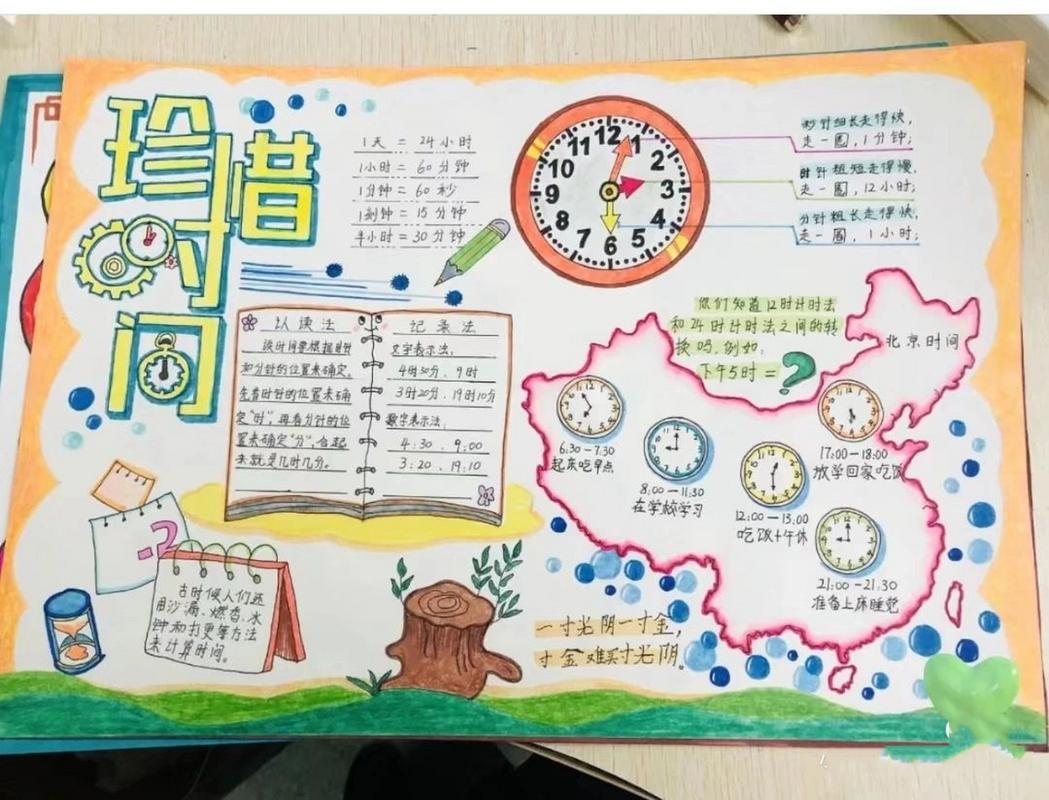 珍惜
时
间
1天 = 24小时
1小时 = 60分钟
1分钟 = 60秒
1刻钟 = 15分钟
半小时 = 30分钟
12
1
2
3
4
5
6
7
8
9
10
秒针细长走得快,
走一圈,1分钟;
时针粗短走得慢,
走一圈,12小时;
分针粗长走得快,
走一圈,1小时;
认读法
读时间要根据时针
和分针的位置来确定,
先看时针的位置来确
定“时”,再看分针的位
置来确定“分”,合起
来就是几时几分。
记录法
文字表示法:
4时30分、9时
3时20分、19时10分
数字表示法:
4:30 、9:00
3:20 、19:10
你们知道12时计时法
和24时计时法之间的转
换吗,例如:
下午5时 = ?
北京时间
6:30-7:30
起床吃早点
8:00-11:30
在学校学习
12:00-13:00
吃饭+午休
17:00-18:00
放学回家吃饭
21:00-21:30
准备上床睡觉
-2
古时候人们选
用沙漏、燃香、水
钟和打更等方法
来计算时间。
一寸光阴一寸金,
寸金难买寸光阴。